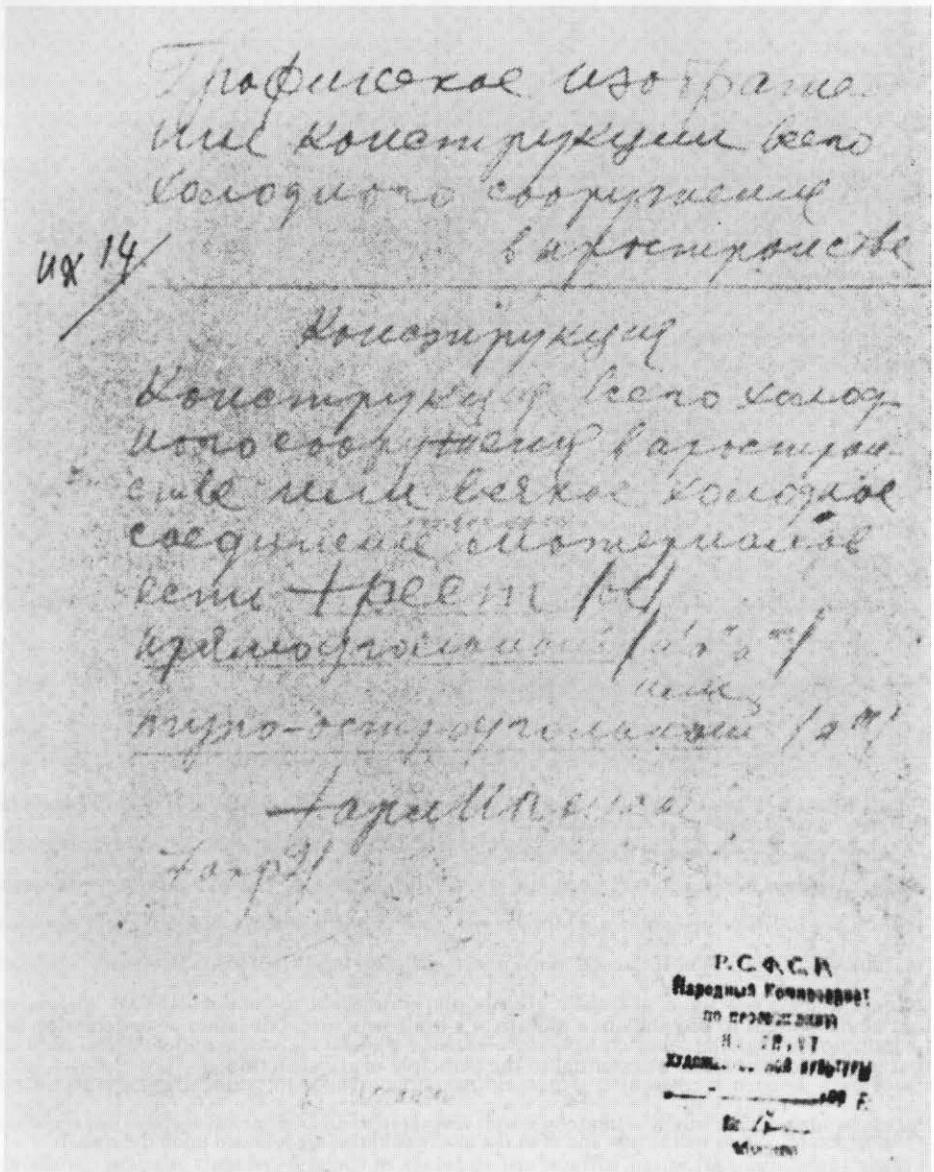 Графическое изображе
ние конструкции всего
холодного сооружения
в пространстве
ИХ 14/
Конструкция
Конструкция всего холод
ного сооружения в простран
стве или всякое холодное
соединение материалов
есть крест
прямоугольный
или
тупо-остроугольный
Карл Иогансон
7 апр 21
Р.С.Ф.С.Р.
Народный Комиссариат
по просвещению
художественной культуры
Москва